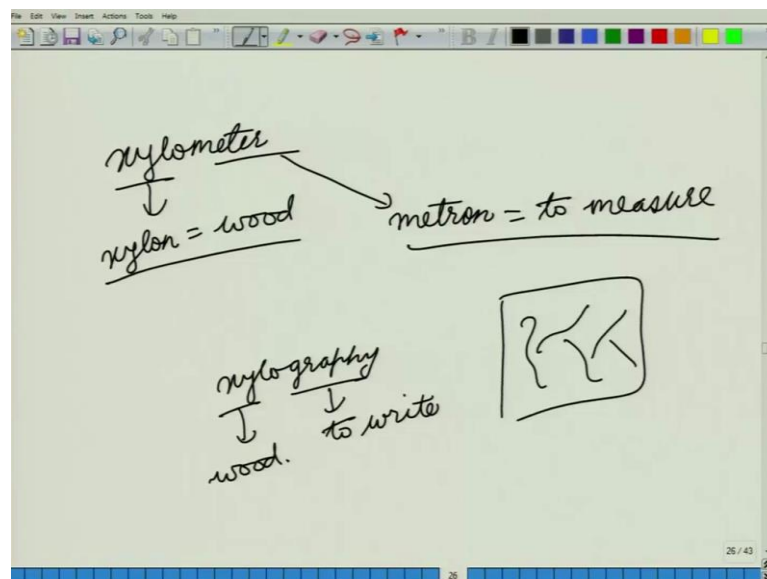 File Edit View Insert Actions Tools Help
B I
xylometer
xylon = wood
metron = to measure
xylography
to write
wood.
26 / 43
26